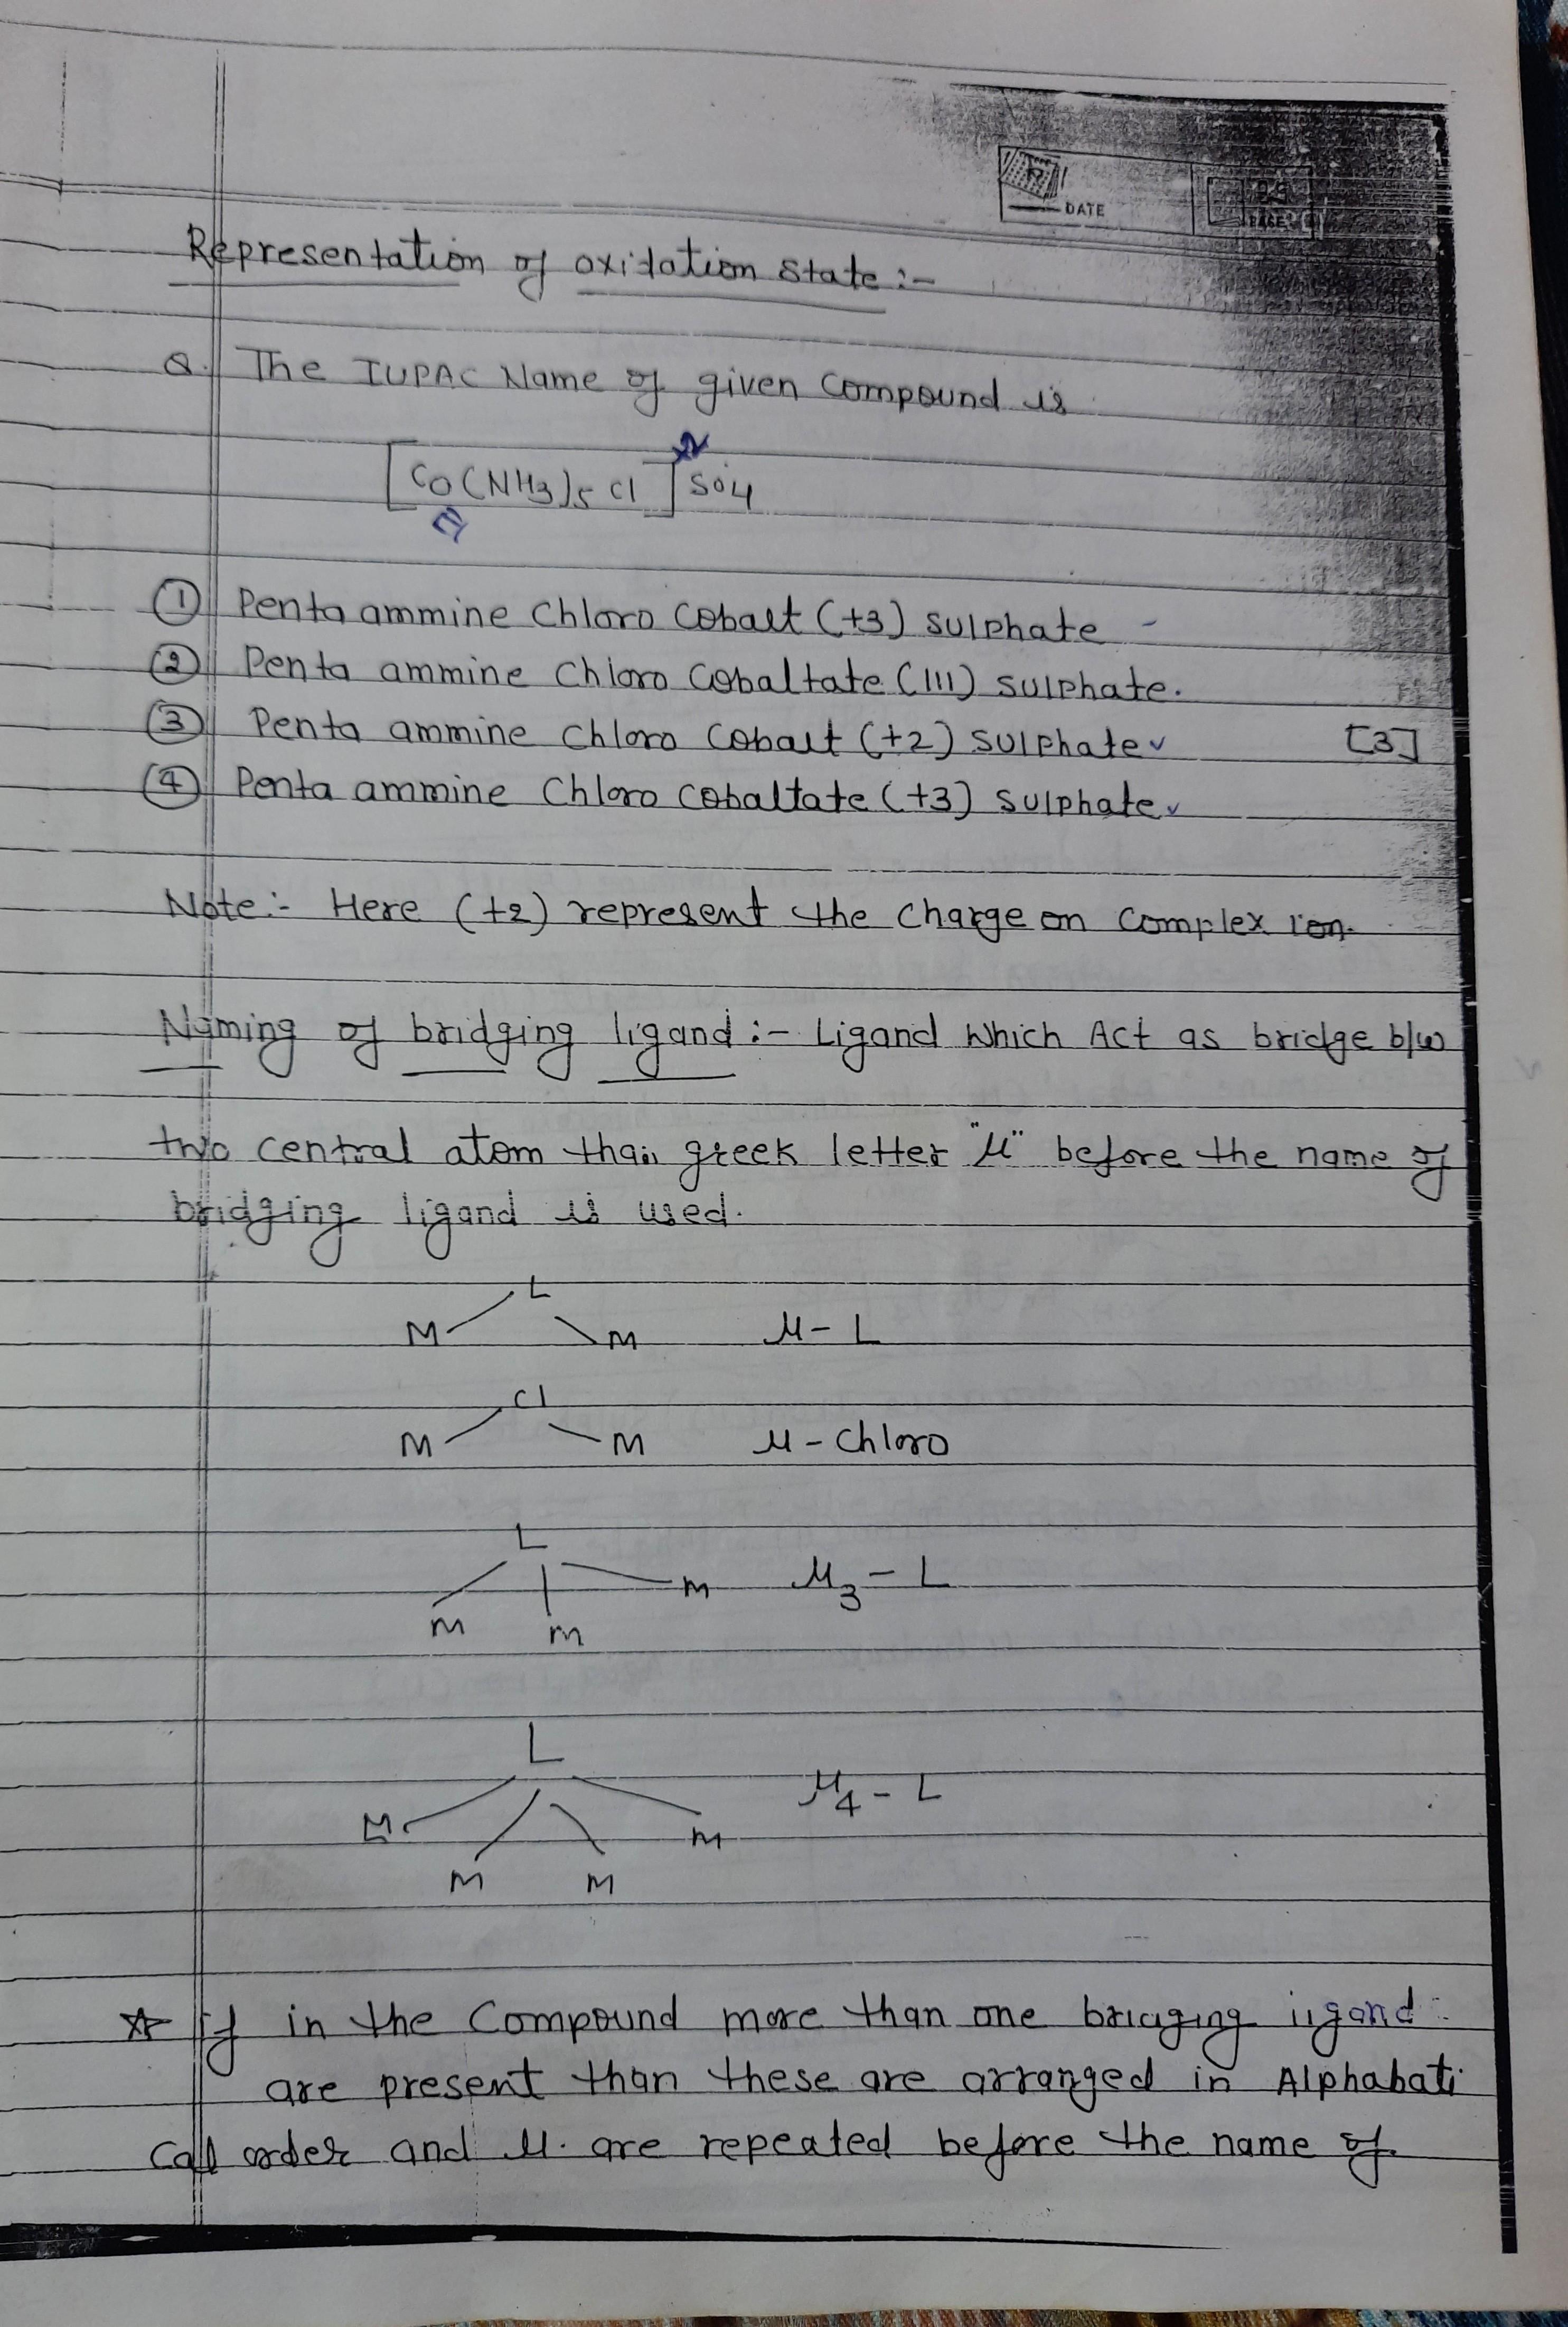 DATE
PAGE
Representation of oxidation state :-
Q. The IUPAC Name of given Compound is
[Co(NH3)5 Cl] SO4
① Penta ammine Chloro Cobalt (+3) sulphate
② Penta ammine Chloro Cobaltate (III) sulphate.
③ Penta ammine Chloro Cobalt (+2) sulphate ✓ [3]
④ Penta ammine Chloro Cobaltate (+3) sulphate ✓
Note:- Here (+2) represent the charge on complex ion.
Naming of bridging ligand :- Ligand which Act as bridge b/w
two central atom than greek letter "μ" before the name of
bridging ligand is used.
L
M M μ- L
Cl
M M μ - Chloro
L
M M M μ3 - L
L
M M M M μ4 - L
☆ if in the Compound more than one bridging ligand
are present than these are arranged in Alphabati
call order and μ. are repeated before the name of